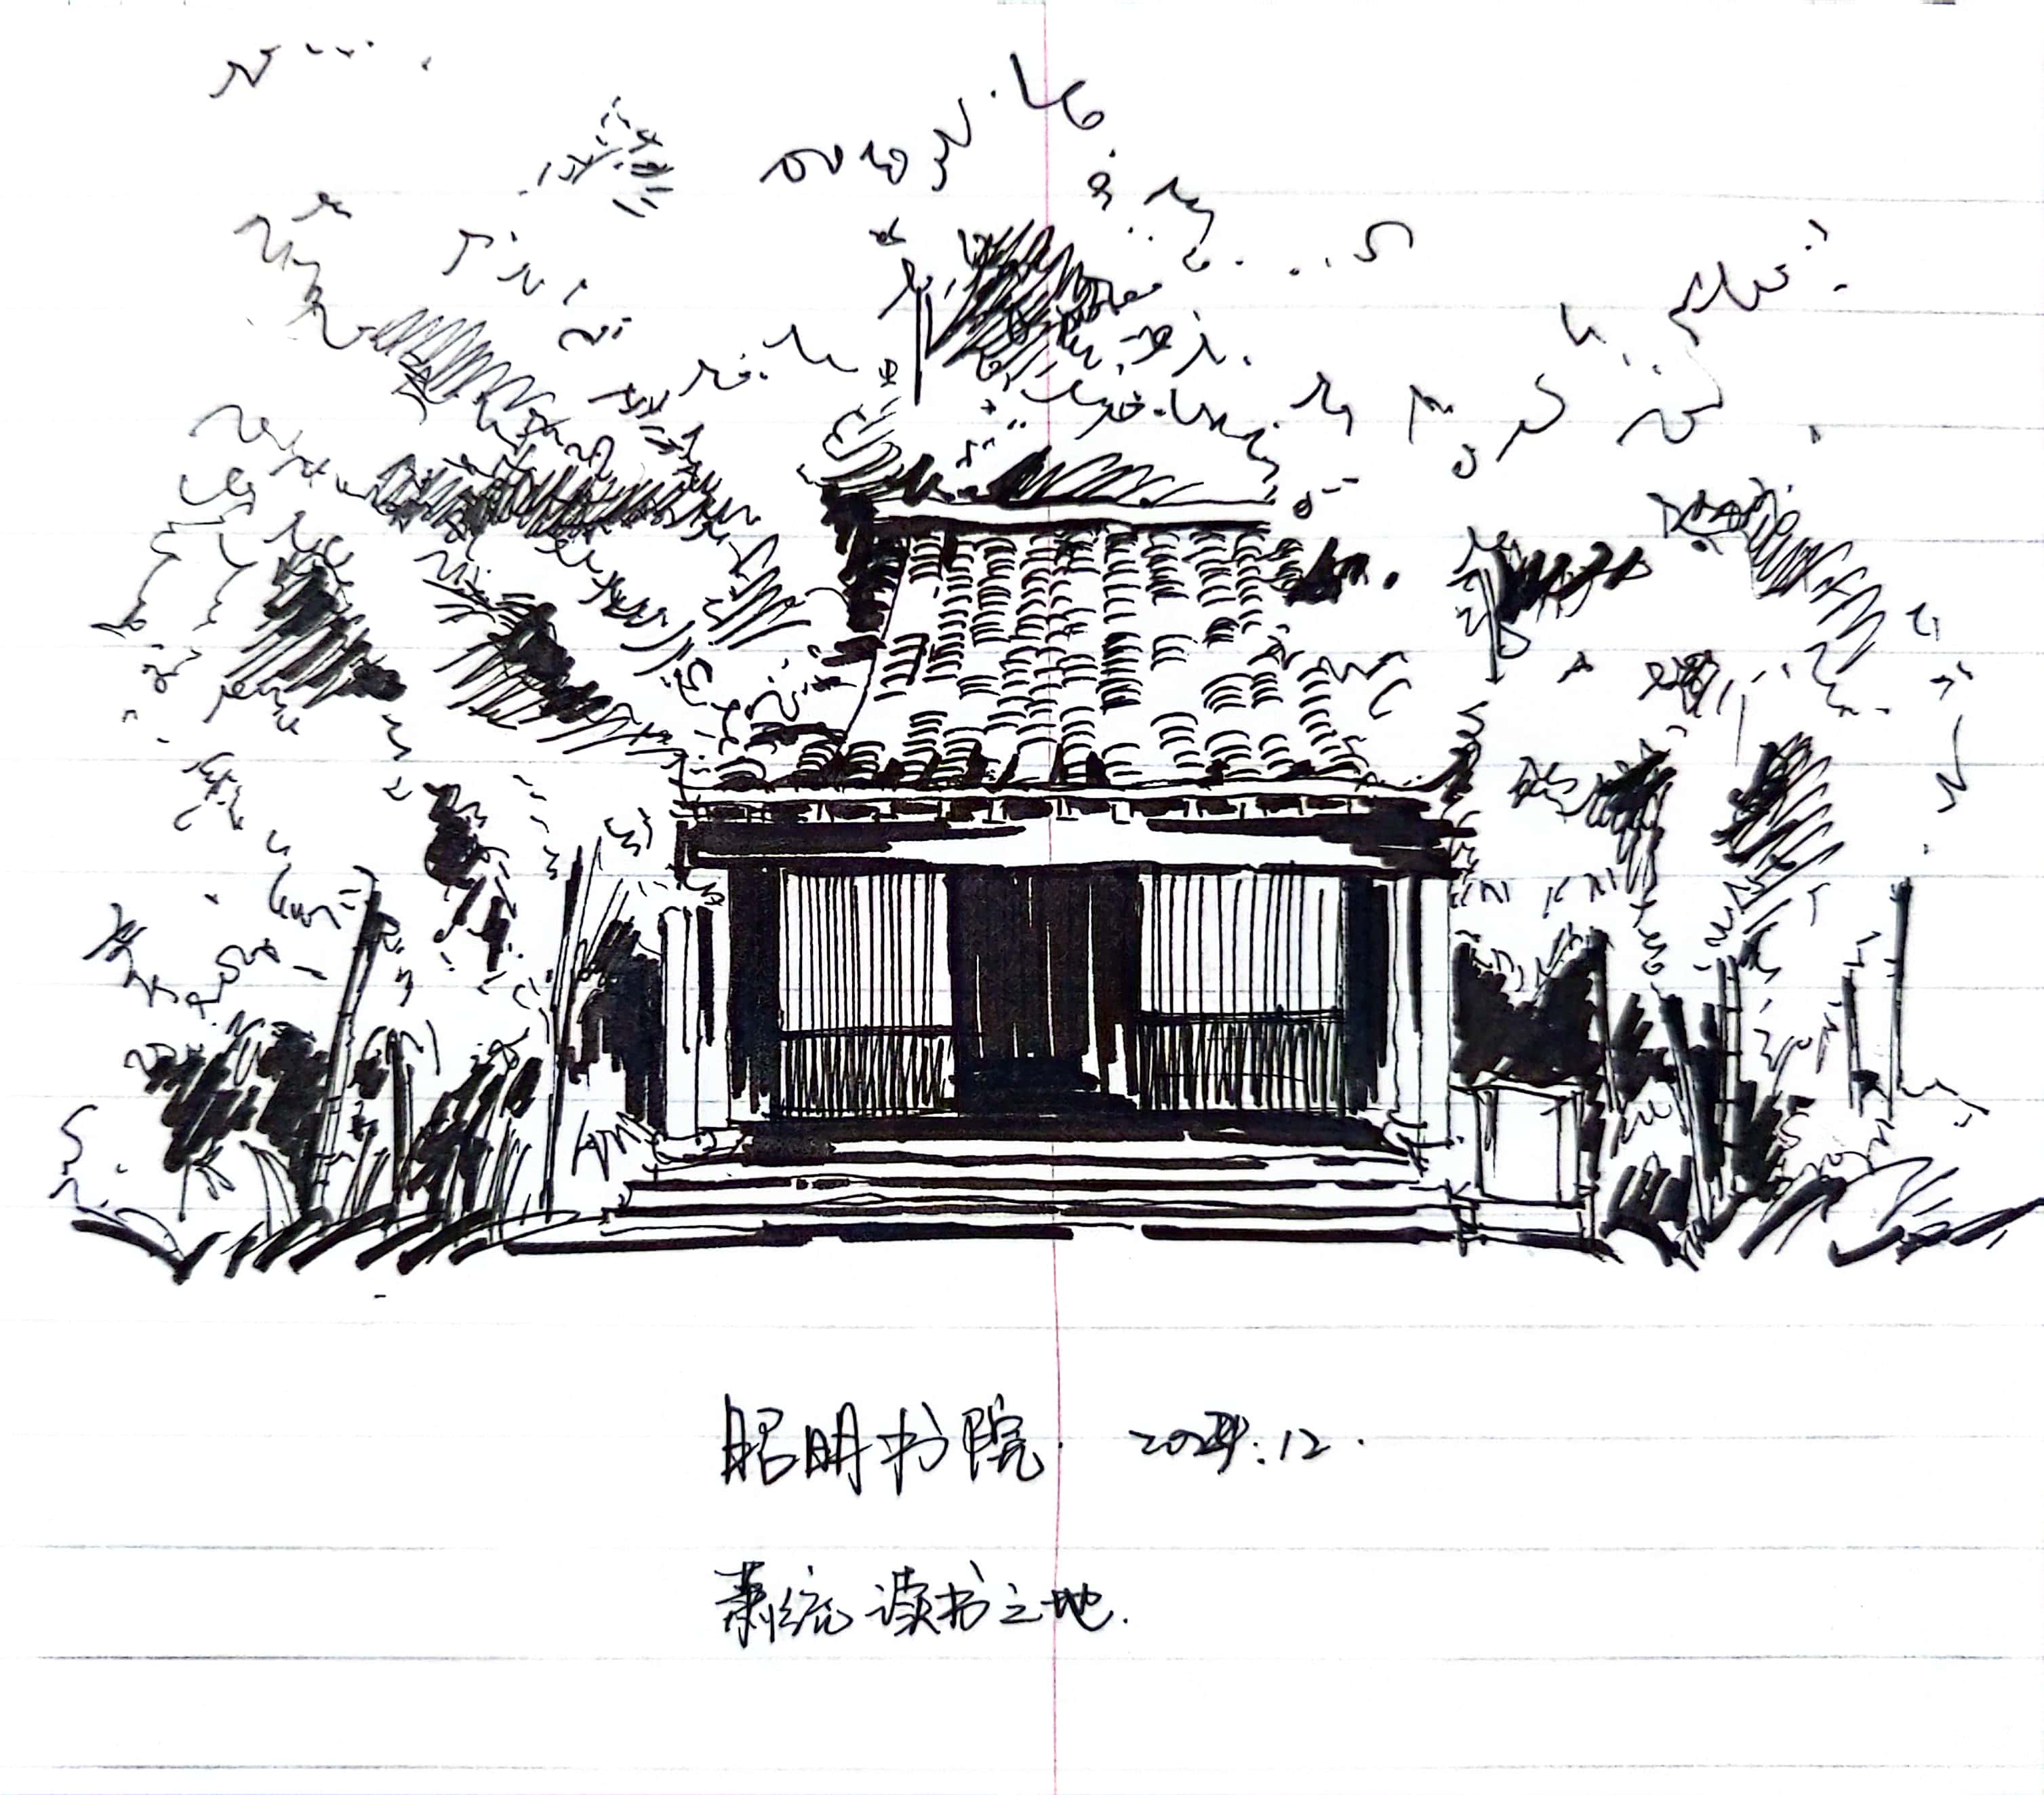 昭明书院 2024.12.
萧统读书之地.